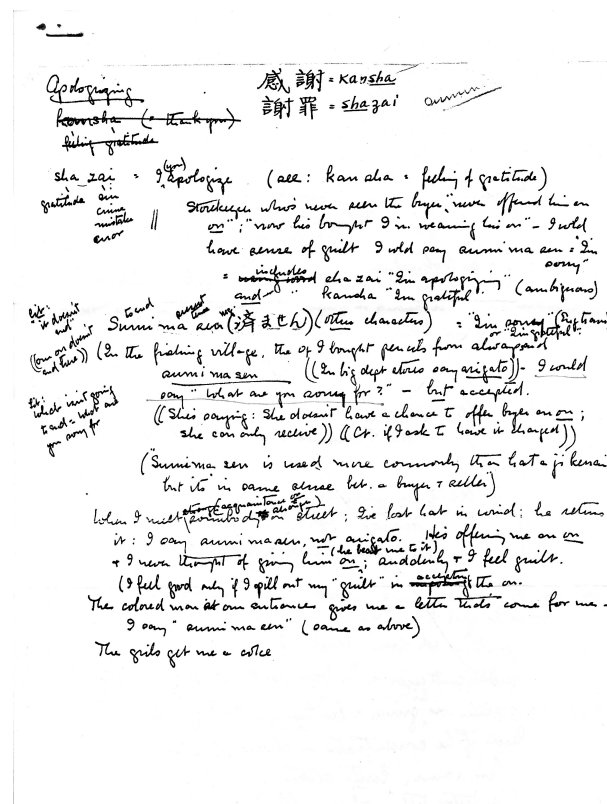 感謝 = kansha
謝罪 = shazai
Apologizing
kansha (= thank you)
feeling gratitude
sha zai = I (you) apologize (see: kansha = feeling of gratitude)
gratitude sin
crime
mistake
error
Storekeeper who's never seen the buyer, "never offered him an
on"; "now he's bought I'm wearing his on" - I wld
have sense of guilt I wld say sumimasen = "I'm
sorry"
= includes shazai "I'm apologizing" (ambiguous)
and " kansha "I'm grateful
Lit:
"it doesn't
end"
to end present tense neg
Sumimasen (済ません) (others characters) = "I'm sorry"
"I'm grateful"
(In the fishing village, the I bought pencils from always said
sumimasen ((In big dept stores say arigato)) - I could
say "What are you sorry for?" - but accepted.
Lit:
What isn't going
to end = what are
you sorry for
((She's saying: She doesn't have a chance to offer buyer an on;
she can only receive)) ((Cf. if I ask to have it charged))
("Sumimasen is used more commonly than katajikenai
but it's in same sense bet. a buyer + seller")
When I meet somebody (acquaintance or stranger) on street; I've lost hat in wind; he returns
it: I say sumimasen, not arigato. He's offering me an on
+ I never thought of giving him on (he beat me to it); suddenly + I feel guilt.
(I feel good only if I spill out my "guilt" in accepting the on.
The colored man at our entrance gives me a letter that's come for me -
I say "sumimasen" (same as above)
The girls get me a coke